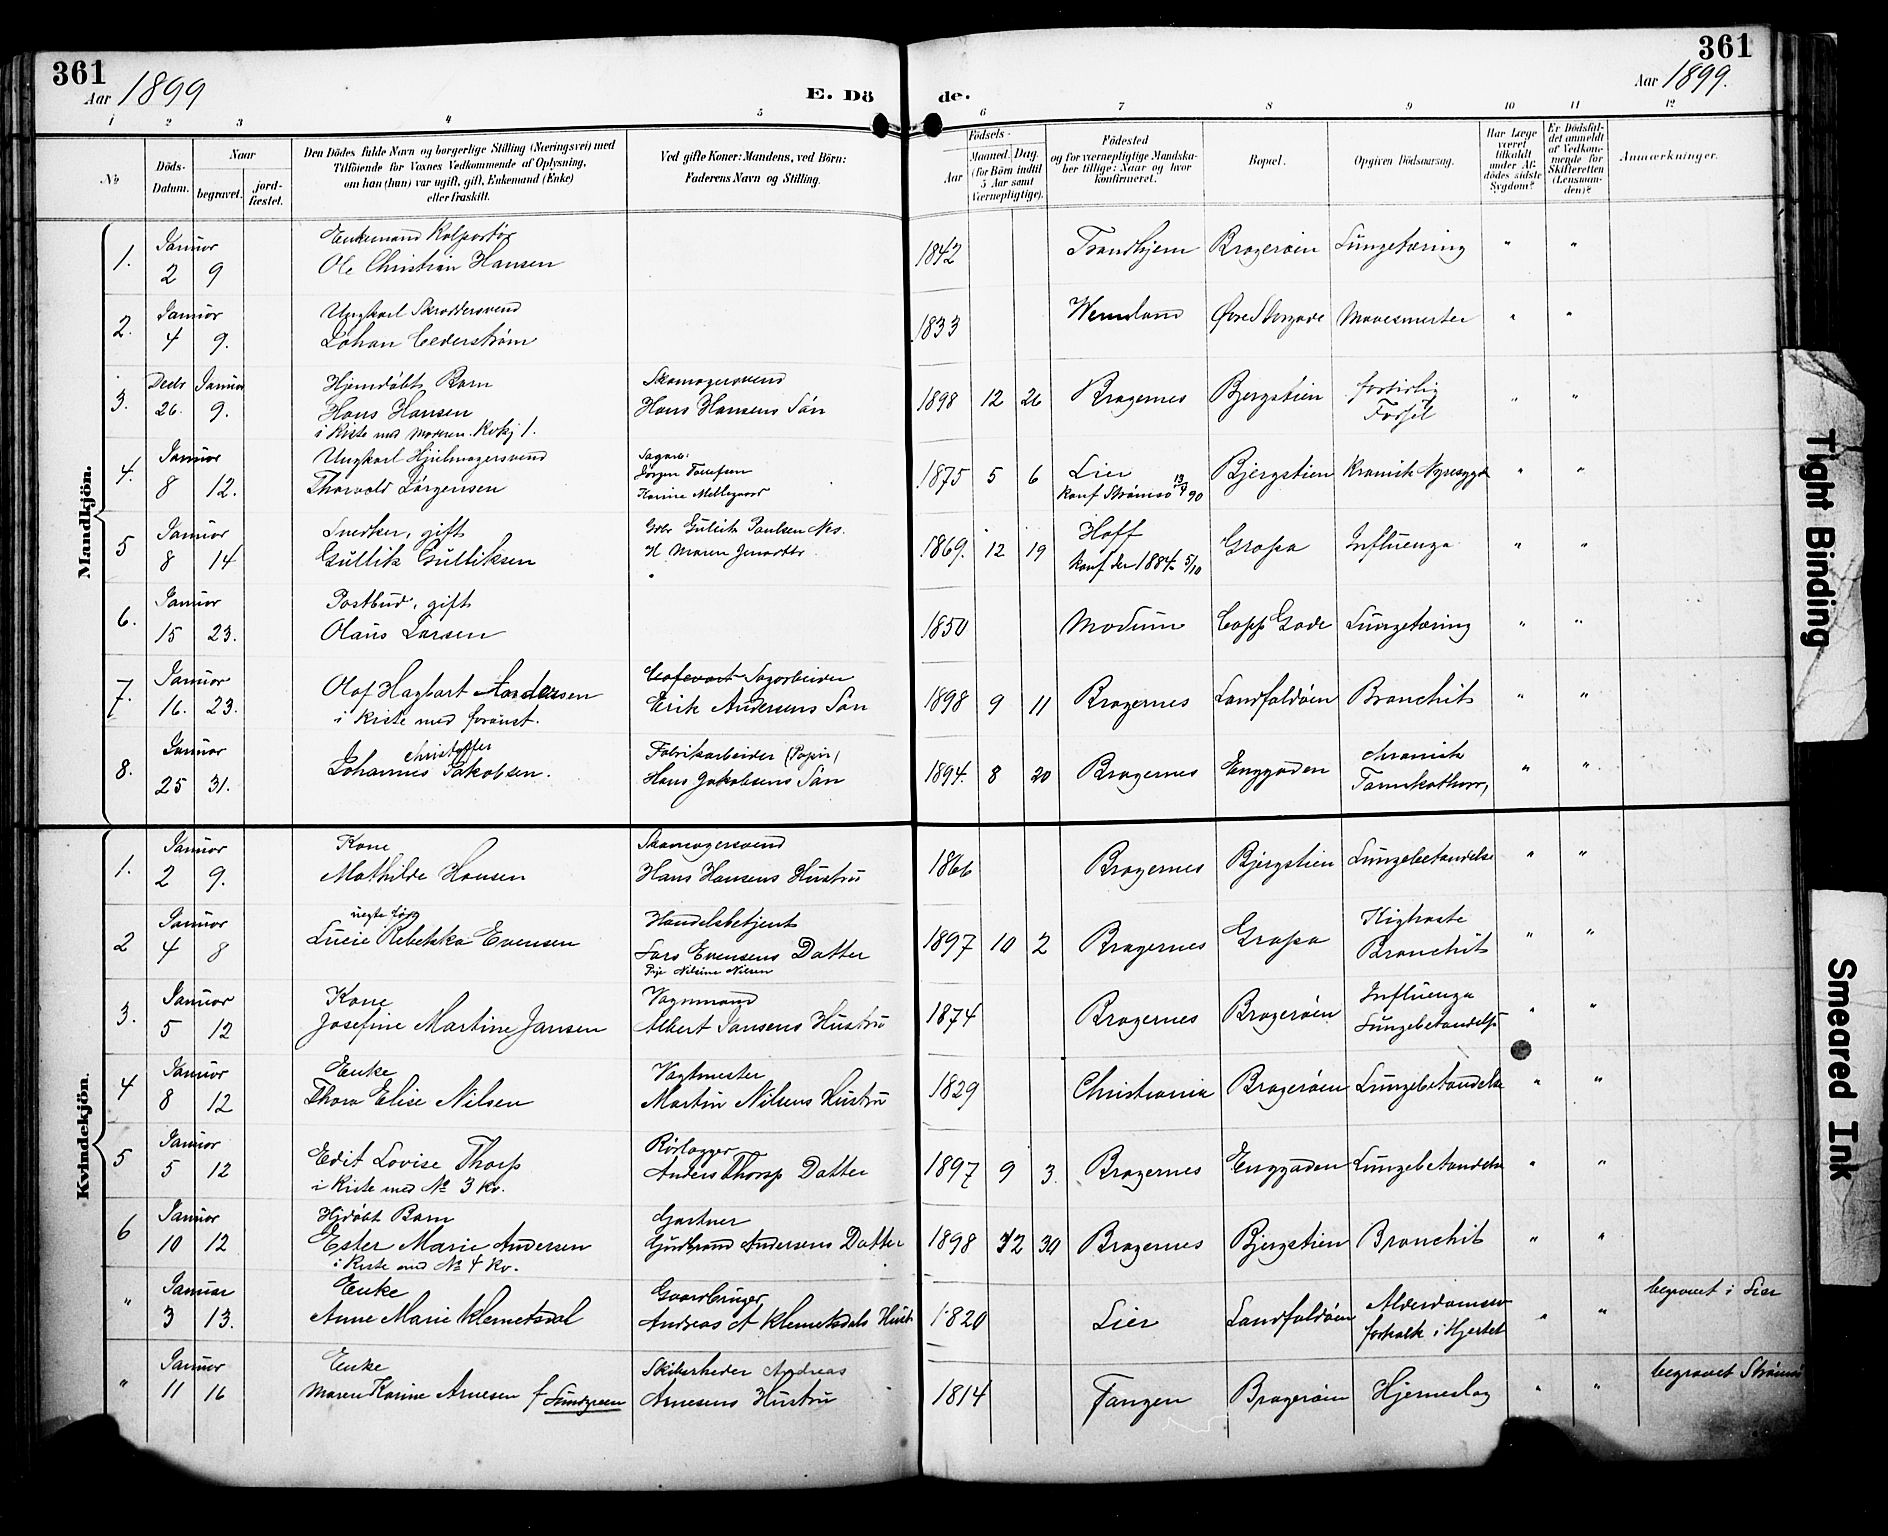 361
Aar 1899
E. Dö
de.
Aar 1899.
361
1 2 3 4 5 6 7 8 9 10 11 12
No
Döds-
Datum.
Naar
begravet.
jord-
fæstet.
Den Dödes fulde Navn og borgerlige Stilling (Næringsvei) med
Tilföiende for Voxnes Vedkommende af Oplysning,
om han (hun) var ugift, gift, Enkemand (Enke)
eller fraskilt.
Ved gifte Koner: Mandens, ved Börn:
Faderens Navn og Stilling.
Födsels-
Aar
Maaned. Dag.
(for Börn indtil
5 Aar samt
Værnepligtige).
Födested
og for værnepligtige Mandska-
ber tillige: Naar og hvor
konfirmeret.
Bopæl.
Opgiven Dödsaarsag.
Har Læge
været
tilkaldt
under Af-
dödes sidste
Sygdom?
Er Dödsfal-
det anmeldt
af Vedkom-
mende for
Skifteretten
(Lensman-
den)?
Anmærkninger.
Mandkjön.
1. Januar 2 9
Enkemand Kolportør
Ole Christian Hansen
1842 Trondhjem Bragerøen Lungetæring " "
2. Januar 4 9.
Ungkarl Skræddersvend
Johan Cederstrøm
1833 Wermland Øvre Storgade Mavesmerter " "
3. Decbr 26. Januar 9.
Hjemdøbt Barn
Hans Hansen
i Kiste med Moderen. Kvkj 1.
Skomagersvend
Hans Hansens Søn
1898 12 26 Bragernes Bjergstien fortidlig
Fødsel " "
4. Januar 8 12.
Ungkarl Hjulmagersvend
Thorvald Jørgensen
Sagarb.
Jørgen Tollefsen
Karine
1875 5 6 Lier
Konf Strømsø 90
Bjergstien Kronisk Nyresygd " "
5 Januar 8 14
Snedker, gift
Gullik Gulliksen
Gullik Paulsen Nes.
H Maren
1869. 12 19 Hoff
Konf der 1884 5/10
Grosa Influenza " "
6. Januar 15 23.
Postbud, gift
Olaus Larsen
1850 Modum Capp Gade Lungetæring " "
7. Januar 16. 23.
Olaf Hagbart Andersen
i Kiste med foranst.
Sagarbeider
Erik Andersens Søn
1898 9 11 Bragernes Landfaldøen Bronchit " "
8. Januar 25 31.
Christoffer
Johannes Jakobsen.
Fabrikarbeider (Papir)
Hans Jakobsens Søn
1894. 8 20 Bragernes Enggaden chronisk
Tarmkatharr, " "
Kvindekjön.
1. Januar 2 9.
Kone
Mathilde Hansen
Skomagersvend
Hans Hansens Hustru
1866 Bragernes Bjergstien Lungebetændelse " "
2 Januar 4 8
uegte født
Lucie Rebekka Evensen
Handelsbetjent
Lars Evensens Datter
Pige Nilsine Nilsen
1897 10 2 Bragernes Grosa Kighoste
Bronchit " "
3. Januar 5 12
Kone
Josefine Martine Jansen
Vognmand
Albert Jansens Hustru
1874 Bragernes Bragerøen Influenza
Lungebetændelse " "
4 Januar 8 12
Enke
Thora Elise Nilsen
Vagtmester
Martin Nilsens Hustru
1829 Christiania Bragerøen Lungebetændelse " "
5 Januar 5 12
Edit Lovise Thorp
i Kiste med No 3 Kv.
Rørlægger
Anders Thorsp Datter
1897 9 3. Bragernes Enggaden Lungebetændelse " "
6 Januar 10 12
Hjdøbt Barn
Ester Marie Andersen
i Kiste med No 4 Kv.
Gartner
Gudbrand Andersens Datter
1898 12 30 Bragernes Bjergstien Bronchit " "
" Januar 3 13.
Enke
Anne Marie Klemetsdal
Gaardbruger
Andreas A Klemetsdals Hust
1820 Lier Landfaldøen Alderdomssv
forkalk i Hjertet " " begravet i Lier
" Januar 11 16
Enke
Maren Karine Arnesen f Lundgreen
Skibsrheder Andreas
Arnesens Hustru
1814 Tangen Bragerøen Hjerneslag " " begravet Strømsø
Tight Binding
Smeared Ink